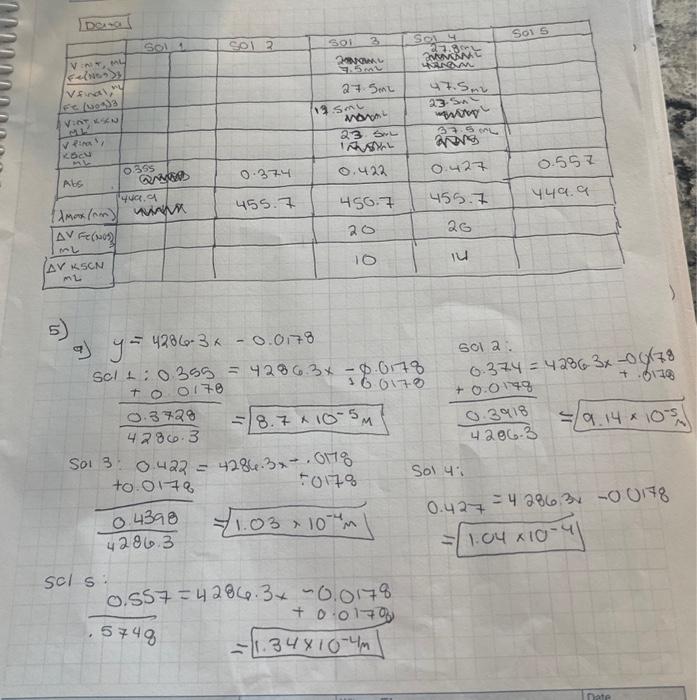 Data
Sol 1 Sol 2 Sol 3 Sol 4 Sol 5
V int, mL Fe(NO3)3 7.5mL 27.8mL
V final, mL Fe(NO3)3 27.5mL 47.5mL
V int, KSCN mL 13.5mL 23.5mL
V final, KSCN mL 23.5mL 37.5mL
Abs 0.355 0.374 0.422 0.427 0.557
λmax (nm) 449.9 455.7 450.7 455.7 449.9
ΔV Fe(NO3)3 mL 20 20
ΔV KSCN mL 10 14
5)
a) y = 4286.3x - 0.0178
Sol 1: 0.355 = 4286.3x - 0.0178
+ 0.0178 + 0.0178
0.3728
4286.3
= 8.7 x 10-5 M
Sol 2:
0.374 = 4286.3x - 0.0178
+ 0.0178 + .0178
0.3918
4286.3
= 9.14 x 10-5 M
Sol 3: 0.422 = 4286.3x - .0178
+0.0178 +0178
0.4398
4286.3
= 1.03 x 10-4 M
Sol 4:
0.427 = 4286.3x - 0.0178
= 1.04 x10-4
Sol 5:
0.557 = 4286.3x - 0.0178
+ 0.0178
.5748
= 1.34x10-4 M
Date